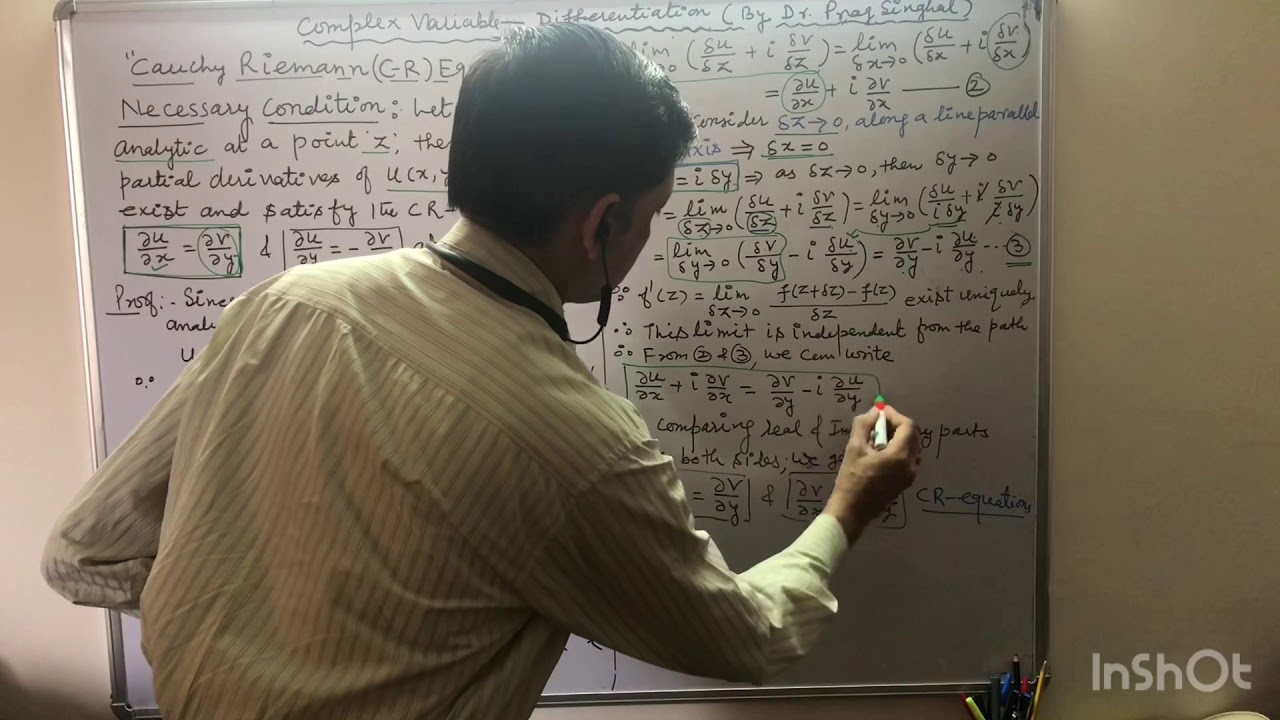 Complex Variable— Differentiation (By Dr. Prag Singhal)
"Cauchy Riemann (C-R) Eq
Necessary Condition: Let
analytic at a point z; the
partial derivatives of u(x,y
exist and satisfy the CR-
∂u/∂x = ∂v/∂y & ∂u/∂y = -∂v/∂x
Proof:- Since
analy
u
∴
lim (δu/δz + i δv/δz) = lim δx→0 (δu/δx + i δv/δx)
= ∂u/∂x + i ∂v/∂x —— ②
onsider δz→0, along a line parallel
axis ⇒ δx=0
= iδy ⇒ as δz→0, then δy→0
= lim δz→0 (δu/δz + i δv/δz) = lim δy→0 (δu/iδy + i δv/iδy)
= lim δy→0 (δv/δy - i δu/δy) = ∂v/∂y - i ∂u/∂y --- ③
∵ f'(z) = lim δz→0 f(z+δz)-f(z)/δz exist uniquely
∴ This limit is independent from the path
∴ From ② & ③, we can write
∂u/∂x + i ∂v/∂x = ∂v/∂y - i ∂u/∂y
Comparing real & Im ry parts
both sides, we g
= ∂v/∂y & ∂v/∂x CR-equations
InShOt